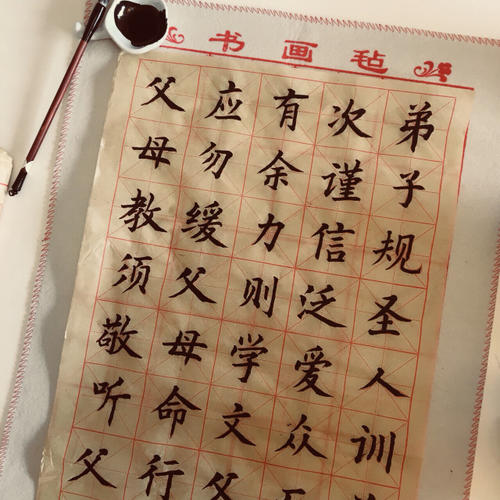 书画毡
弟子规圣人训
次谨信泛爱众
有余力则学文父
应勿缓父母命行
父母教须敬听父